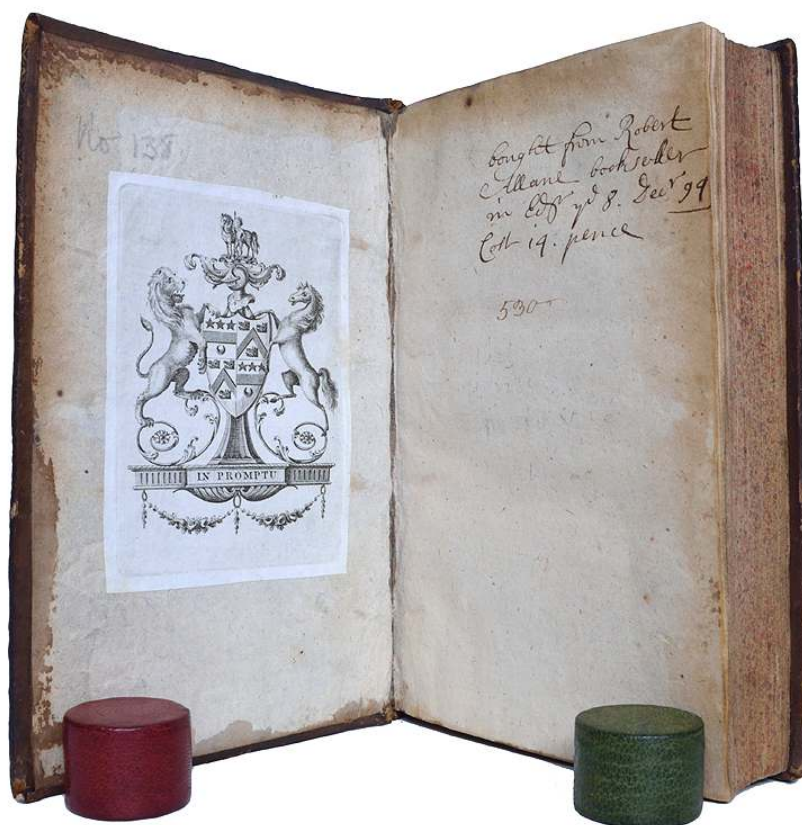 No 138
IN PROMPTU
bought from Robert
Allane bookseller
in Edr yd 8. Decr 94
Cost 14. pence
530